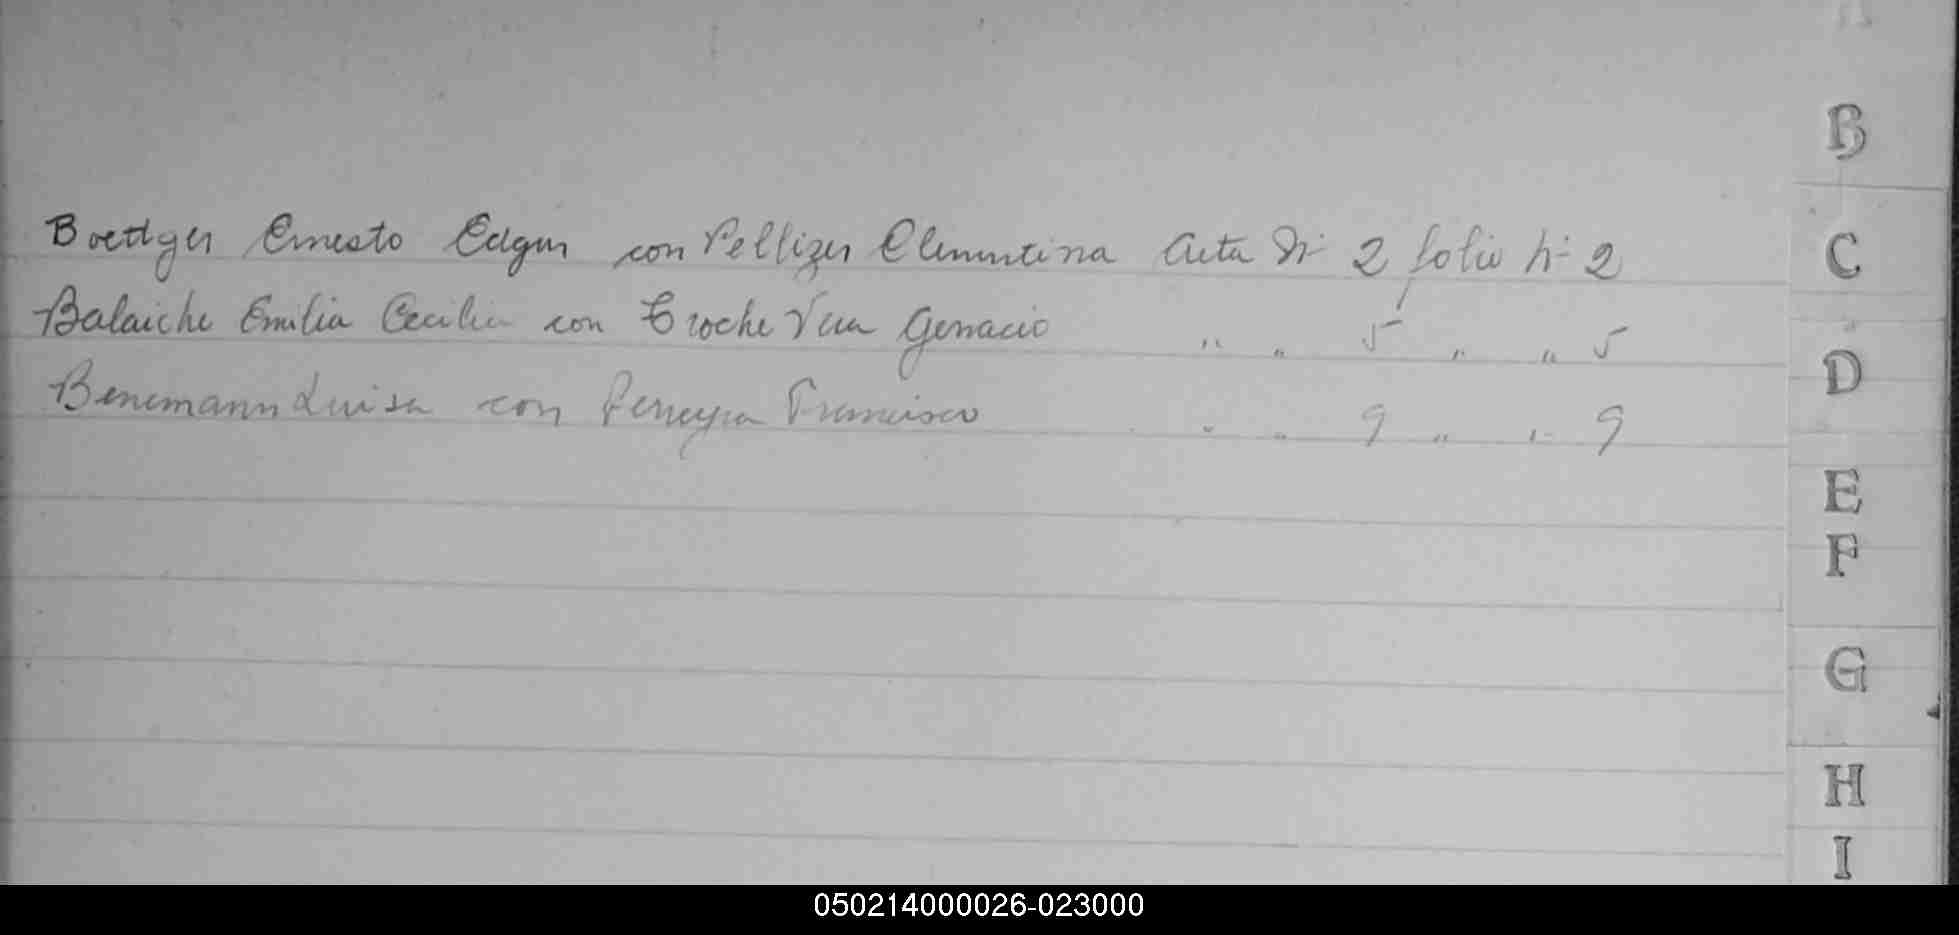 B
Boettger Ernesto Edgar con Pellizer Clementina Acta Nº 2 folio Nº 2
C
Balaiche Emilia Cecilia con Troche Vera Genacio " " 5 " " 5
D
Benemann Luisa con Pereyra Francisco " " 9 " " 9
E
F
G
H
I
050214000026-023000